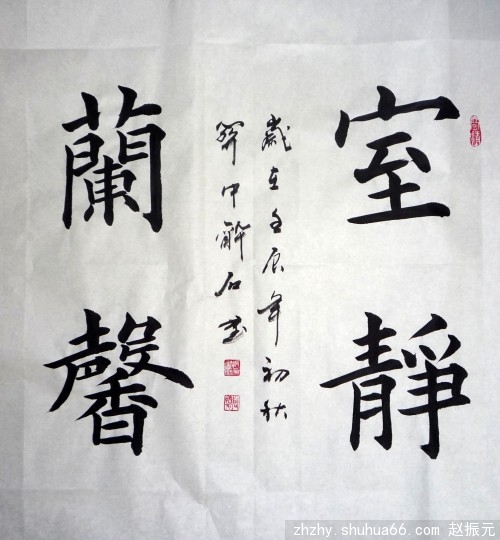 室靜
蘭馨
歲在壬辰年初秋
解石書
zhzhy.shuhua66.com 赵振元